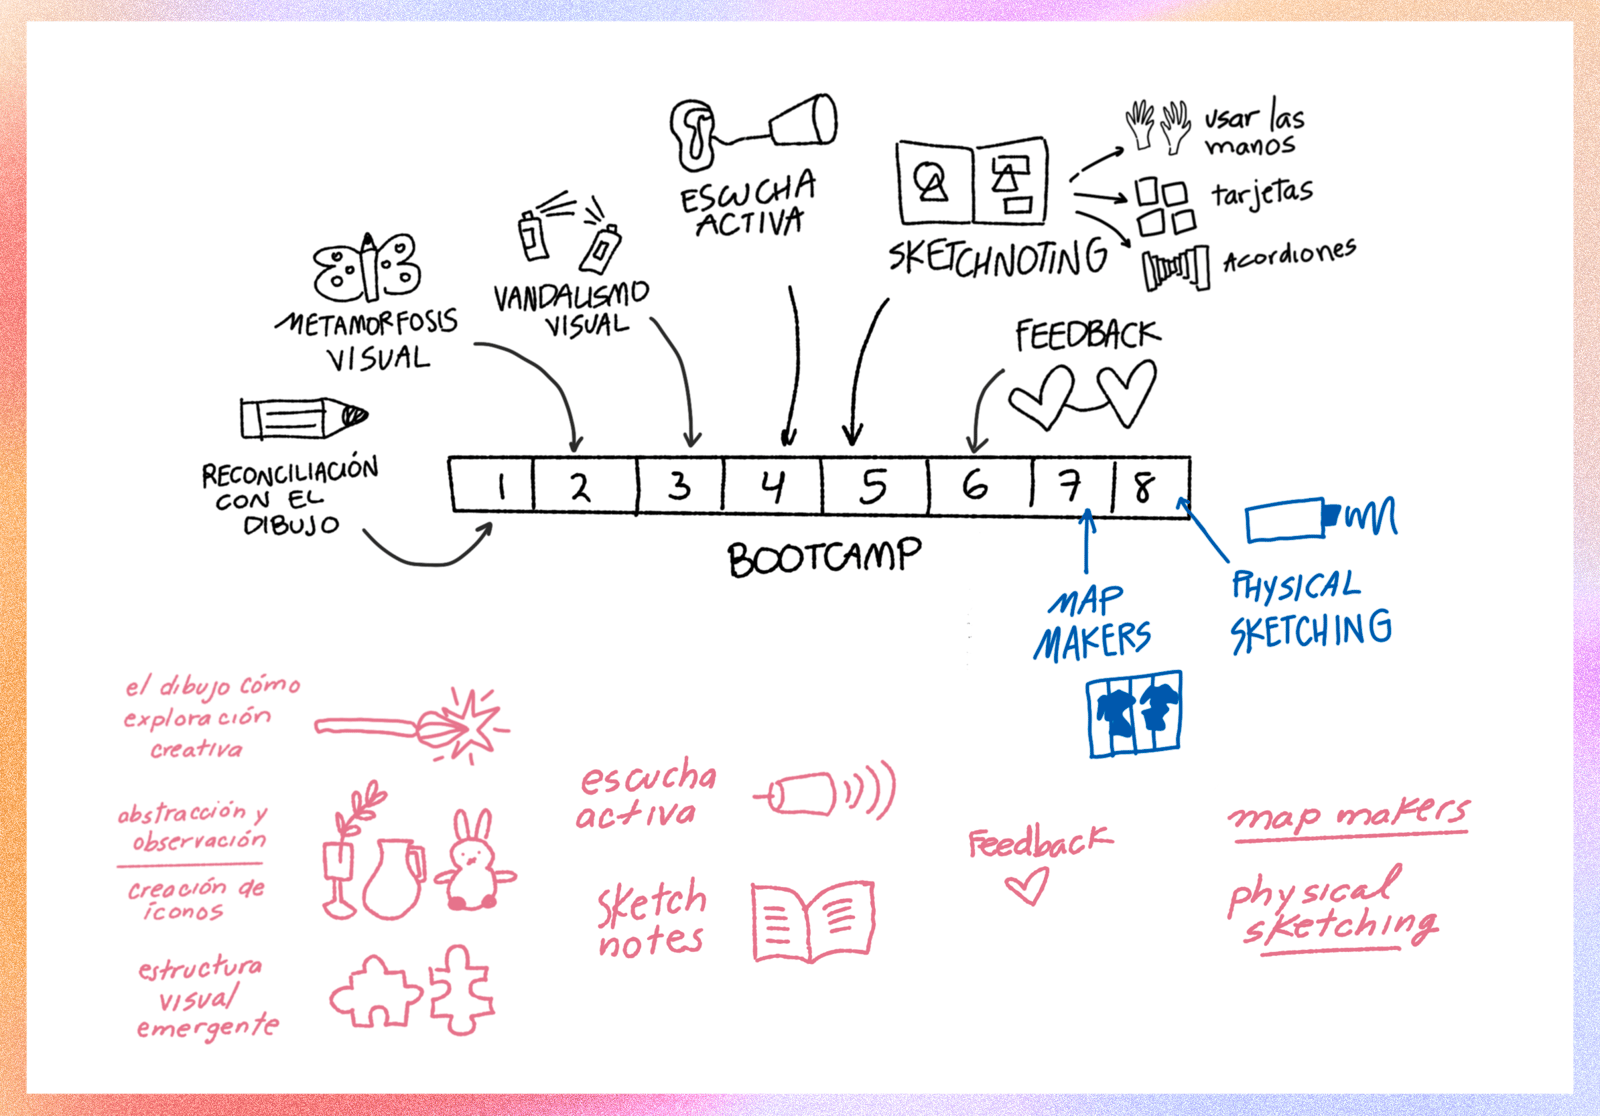 ESCUCHA
ACTIVA
usar las
manos
tarjetas
Acordiones
SKETCHNOTING
VANDALISMO
VISUAL
METAMORFOSIS
VISUAL
FEEDBACK
RECONCILIACIÓN
CON EL
DIBUJO
1 2 3 4 5 6 7 8
BOOTCAMP
MAP
MAKERS
PHYSICAL
SKETCHING
el dibujo cómo
exploración
creativa
abstracción y
observación
creación de
íconos
estructura
visual
emergente
escucha
activa
sketch
notes
Feedback
map makers
physical
sketching